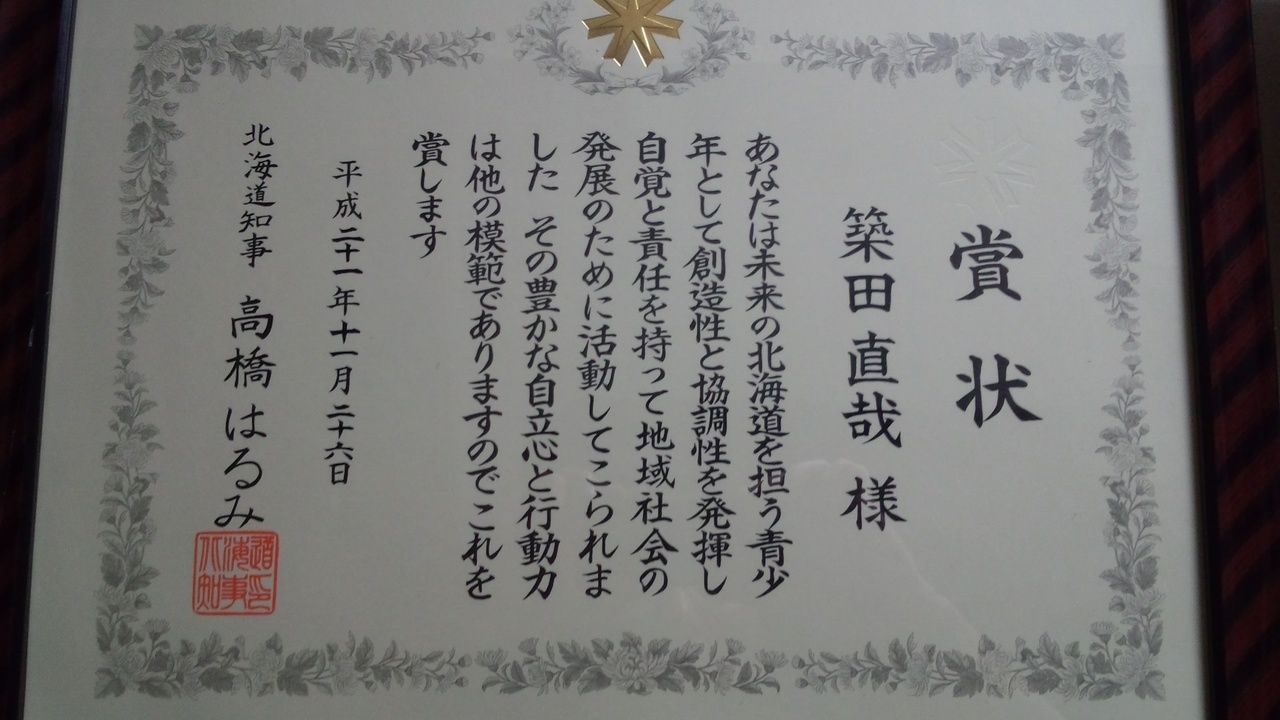 賞状
築田直哉 様
あなたは未来の北海道を担う青少
年として創造性と協調性を発揮し
自覚と責任を持って地域社会の
発展のために活動してこられま
した その豊かな自立心と行動力
は他の模範でありますのでこれを
賞します
平成二十一年十一月二十六日
北海道知事 高橋はるみ